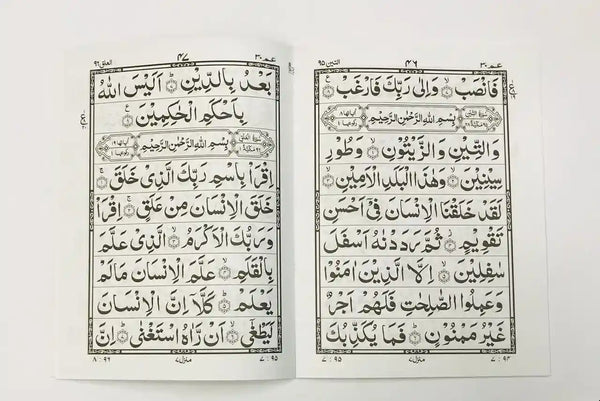 عم ۳۰
۴۶
التين ۹۵
فَانْصَبْ ۙ وَاِلٰى رَبِّكَ فَارْغَبْ
سورة التين
بِسْمِ اللهِ الرَّحْمٰنِ الرَّحِيْمِ
اياتها ۸
وَالتِّيْنِ وَ الزَّيْتُوْنِ ۙ وَطُوْرِ
سِيْنِيْنَ ۙ وَهٰذَا الْبَلَدِ الْاَمِيْنِ ۙ
لَقَدْ خَلَقْنَا الْاِنْسَانَ فِيْٓ اَحْسَنِ
تَقْوِيْمٍ ۫ ثُمَّ رَدَدْنٰهُ اَسْفَلَ
سٰفِلِيْنَ ۙ اِلَّا الَّذِيْنَ اٰمَنُوْا
وَعَمِلُوا الصّٰلِحٰتِ فَلَهُمْ اَجْرٌ
غَيْرُ مَمْنُوْنٍ ؕ فَمَا يُكَذِّبُكَ
۷ : ۹۵
منزل ۷
۷ : ۹۴
عم ۳۰
۴۷
العلق ۹۶
بَعْدُ بِالدِّيْنِ ؕ اَلَيْسَ اللهُ
بِاَحْكَمِ الْحٰكِمِيْنَ
سورة العلق
بِسْمِ اللهِ الرَّحْمٰنِ الرَّحِيْمِ
اياتها ۱۹
اِقْرَاْ بِاسْمِ رَبِّكَ الَّذِيْ خَلَقَ ۚ
خَلَقَ الْاِنْسَانَ مِنْ عَلَقٍ ۚ اِقْرَاْ
وَرَبُّكَ الْاَكْرَمُ ۙ الَّذِيْ عَلَّمَ
بِالْقَلَمِ ۙ عَلَّمَ الْاِنْسَانَ مَالَمْ
يَعْلَمْ ؕ كَلَّآ اِنَّ الْاِنْسَانَ
لَيَطْغٰٓى ۙ اَنْ رَّاٰهُ اسْتَغْنٰى ؕ اِنَّ
۸ : ۹۶
منزل ۷
۷ : ۹۵